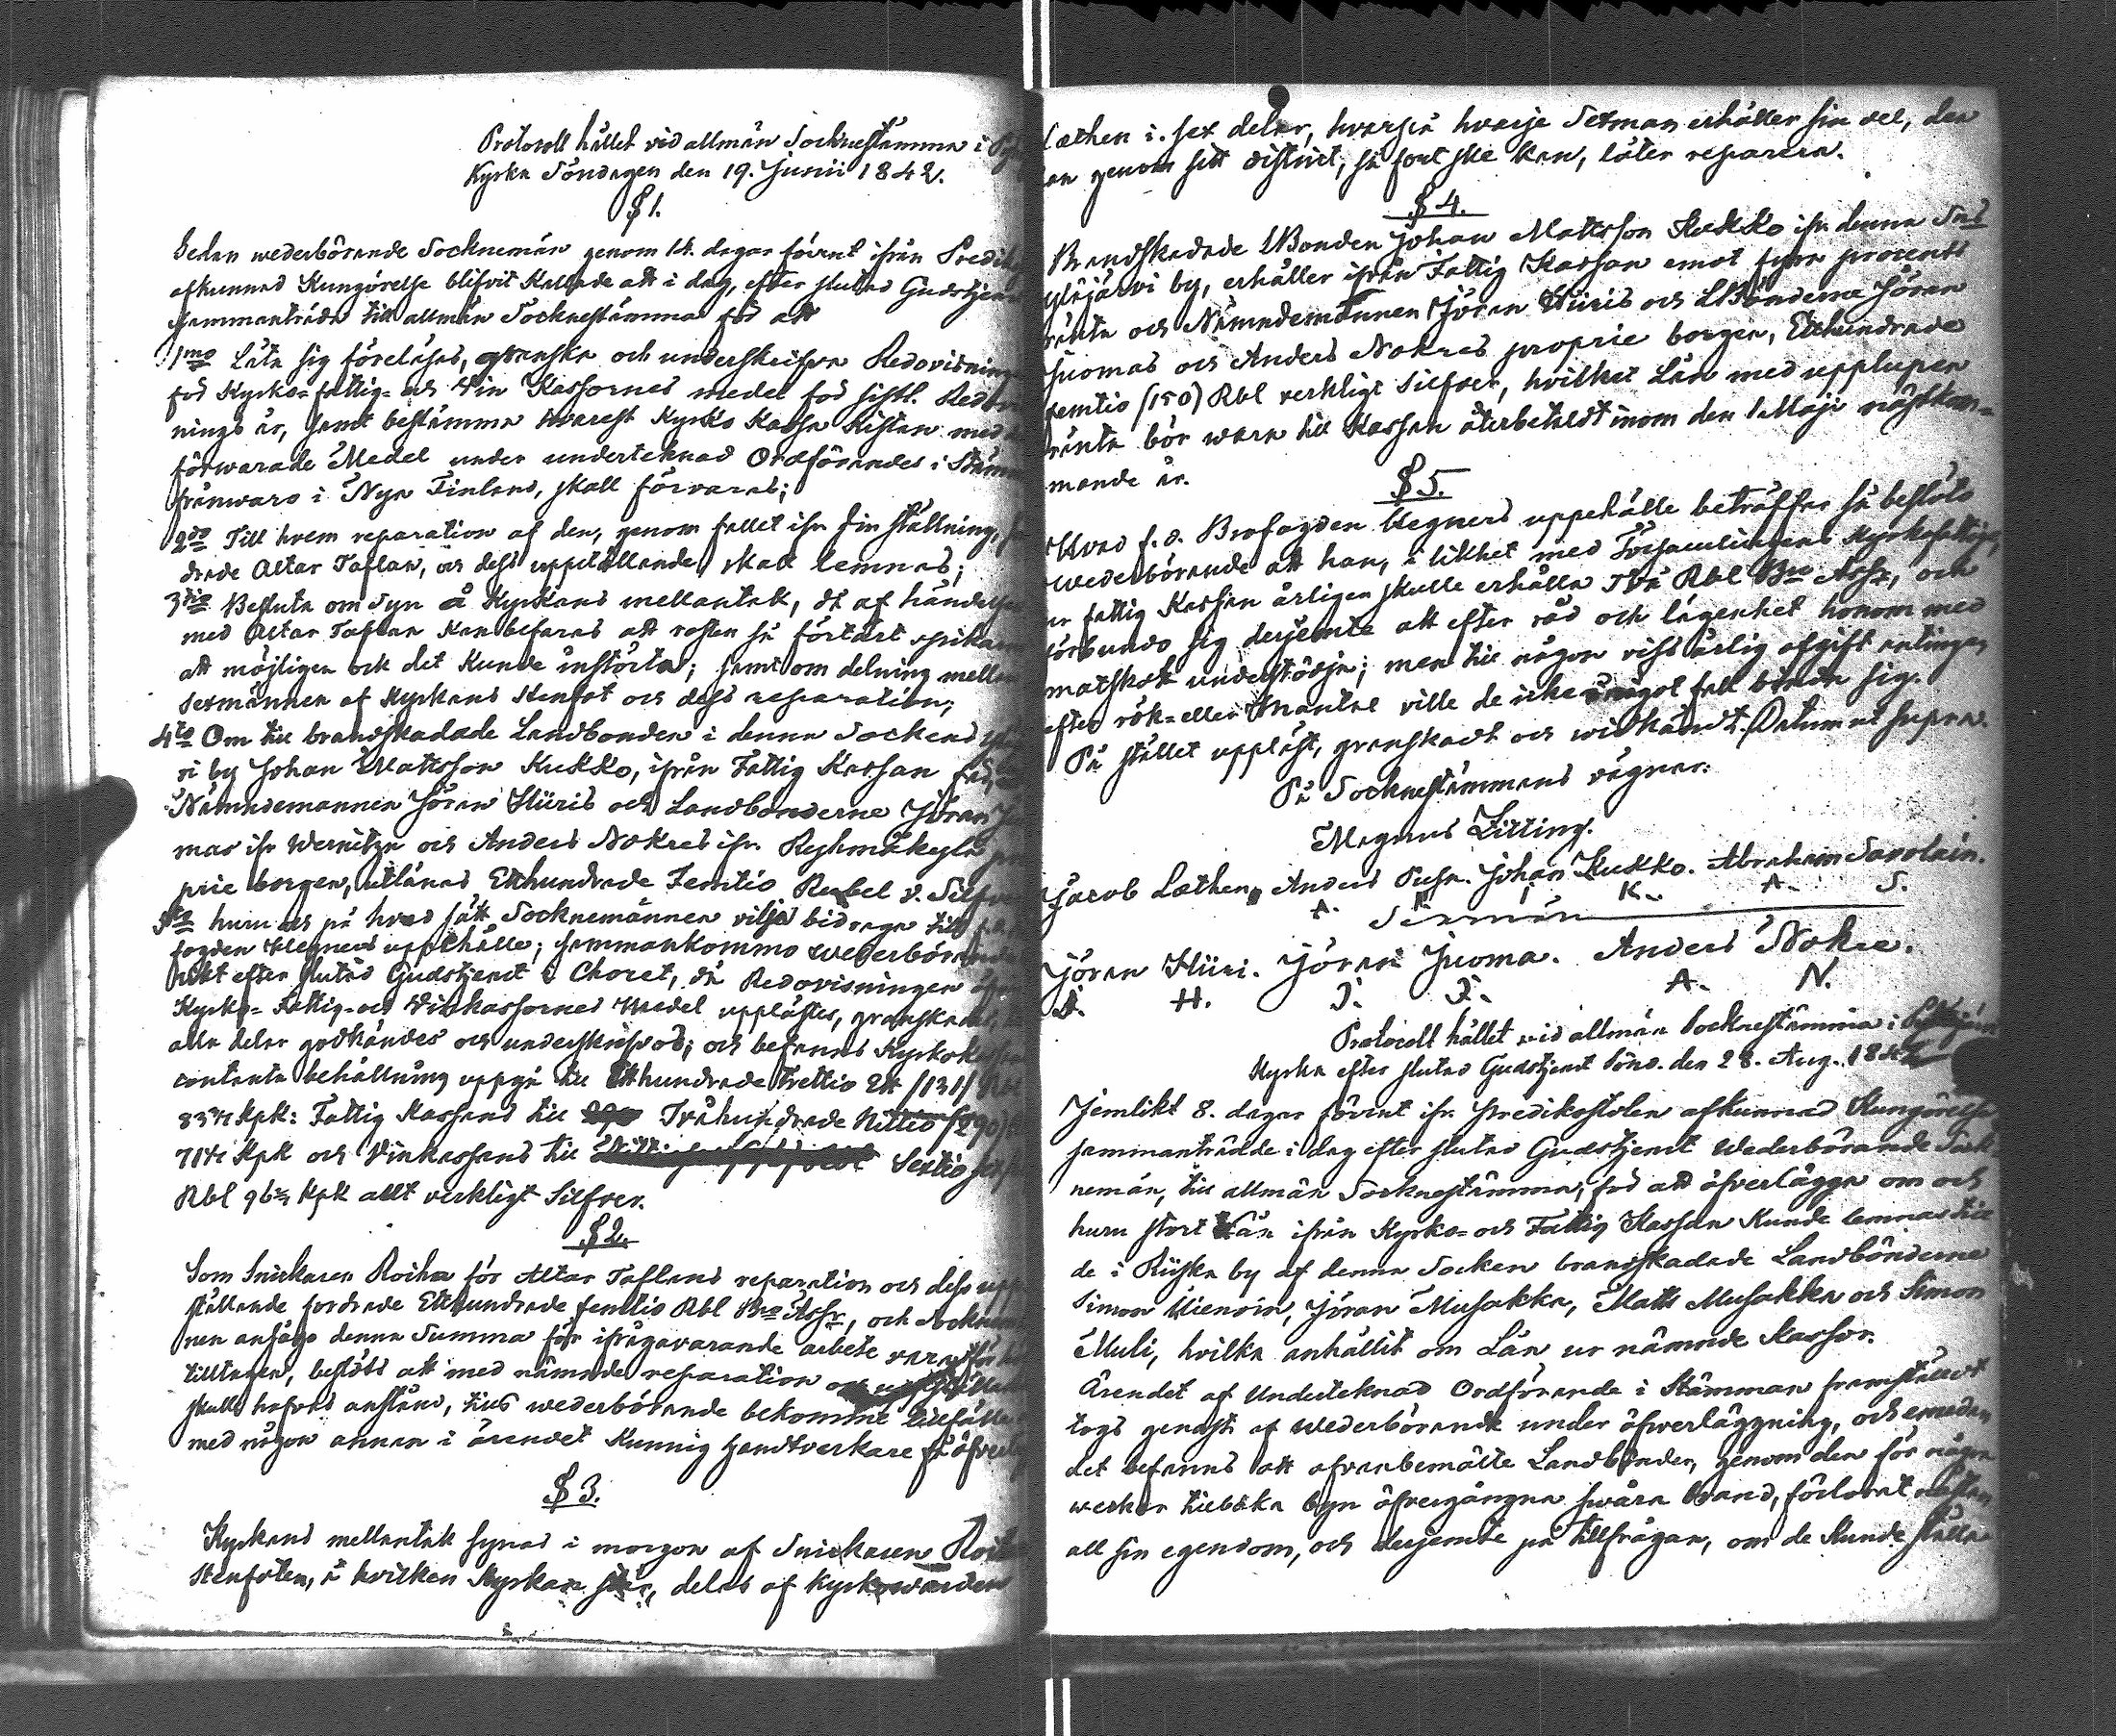 Protocoll hållet vid allmän Socknestämma i
Kyrka Söndagen den 19. Junii 1842.
§ 1.
Sedan wederbörande Socknemän genom 14. dagar förut ifrån
afkunnad Kungörelse blifvit Kallade att i dag, efter slutad
sammanträda till allmän Socknestämma för att
1mo Låta sig föreläsas, granska och underskrifva
för Kyrko- fattig- och Vin Kassornes medel för sistl.
nings år, samt bestämma hvarest Kyrko Kassa Kistan med
förwarade Medel under undertecknad Ordförandes i
frånwaro i Nya Finland, skall förvaras;
2do Till hvem reparation af den, genom fallet ifr. sin ställning,
drade Altar Taflan, och dess uppställande, skall lemnas;
3tio Besluta om Syn å Kyrkans mellantak, då af händelsen
med Altar Taflan Kan befaras att rosten så förtärt
att möjligen ock det Kunde instörta; samt om delning
sexmännen af Kyrkans Stenfot och dess reparation;
4to Om till brandskadade Landbonden i denna Sockens
vi by Johan Mattsson Kukko, ifrån Fattig Kassan
Nämndemannen Jöran Hiiris och Landbönderne Jöran
mas ifr. Wernitza och Anders Nokres ifr.
prie borgen, utlånas Etthundrade Femtio Rubel v.
5to huru och på hvad sätt Socknemännen vilja bidraga till
fogden Wegners uppehälle; sammankommo wederbörande
nikt efter slutad Gudstjenst i Choret, då Redovisningen
Kyrko- Fattig- och Vinkassornes Medel upplästes, granskades,
alla delar godkändes och underskrefvos; och befanns
contanta behållning uppgå till Etthundrade Trettio Ett (131)
Kpk: Fattig Kassans till Tvåhundrade Nittio (290)
Kpk och Vinkassans till Sextio
Rbl Kpk allt verkligt Silfver.
§ 2.
Som Snickaren Roiha för Altar Taflans reparation och dess
ställande fordrade Etthundrade femtio Rbl Bco Assr, och
nen ansågo denna Summa för ifrågavarande arbete
tilltagen, beslöts att med nämnde reparation och
skulle hafvas anstånd, tills wederbörande bekomme
med någon annan i ärendet Kunnig handtverkare
§ 3.
Kyrkans mellantak synas i morgon af Snickaren
Stenfoten, å hvilken Kyrkan står, delas af Kyrkowärden
Læthen i sex delar, hvarpå hvarje Sexman erhåller sin del, den
han genom sitt district, så fort ske kan, låter reparera.
§ 4.
Brandskadade LBonden Johan Mattsson Kukko ifr. denna Sns
by, erhåller ifrån Fattig Kassan emot fyra procents
ränta och Nämndemannen Jöran Hiiris och LBönderne Jöran
Juomas och Anders Nokres proprie borgen, Etthundrade
femtio (150) Rbl verkligt Silfver, hvilket Lån med upplupen
ränta bör wara till Kassan återbetaldt inom den 1 Maji nästkom-
mande år.
§ 5.
Hvad f.d. Brofogden Wegners uppehälle beträffar så beslöto
wederbörande att han, i likhet med Församlingens Kyrkofattige,
ur fattig Kassan årligen skulle erhålla Två Rbl Bco Assr, och
förbundo sig derjemte att efter råd och lägenhet honom med
matskott understödja; men till någon viss årlig afgift antingen
efter rök- eller Mantal ville de icke i något fall binda sig.
På stället uppläst, granskadt och widkändt. Datum ut supra.
På Socknestämmans vägnar:
Magnus Zitting.
Jacob Læthen, Anders Pusa. Johan Kukko. Abraham Savolain.
A. K. A. S.
Sexmän
Jöran Hiiri. Jöran Juoma. Anders Nokre.
J. H. J. J. A. N.
Protocoll hållet vid allmän Socknestämma i
Kyrka efter slutad Gudstjenst Sönd. den 28. Aug. 1842
Jemlikt 8. dagar förut ifr. predikostolen afkunnad Kungörelse
sammanträdde i dag efter slutad Gudstjenst Wederbörande Sock-
nemän, till allmän Socknestämma, för att öfverlägga om och
huru stort Lån ifrån Kyrko- och Fattig Kassan Kunde lemnas till
de i Riiska by af denna Socken brandskadade Landbönderne
Simon Hienoin, Jöran Musakka, Matts Musakka och Simon
Muli, hvilka anhållit om Lån ur nämnde Kassor.
Ärendet af Undertecknad Ordförande i Stämman framställdt
togs genast af wederbörande under öfwerläggning, och emedan
det befanns att ofvanbemälte Landbönder, genom den för några
weckor tillbaka byn öfvergångna swåra brand, förlorat nästan
all sin egendom, och derjemte på tillfrågan, om de Kunde ställa